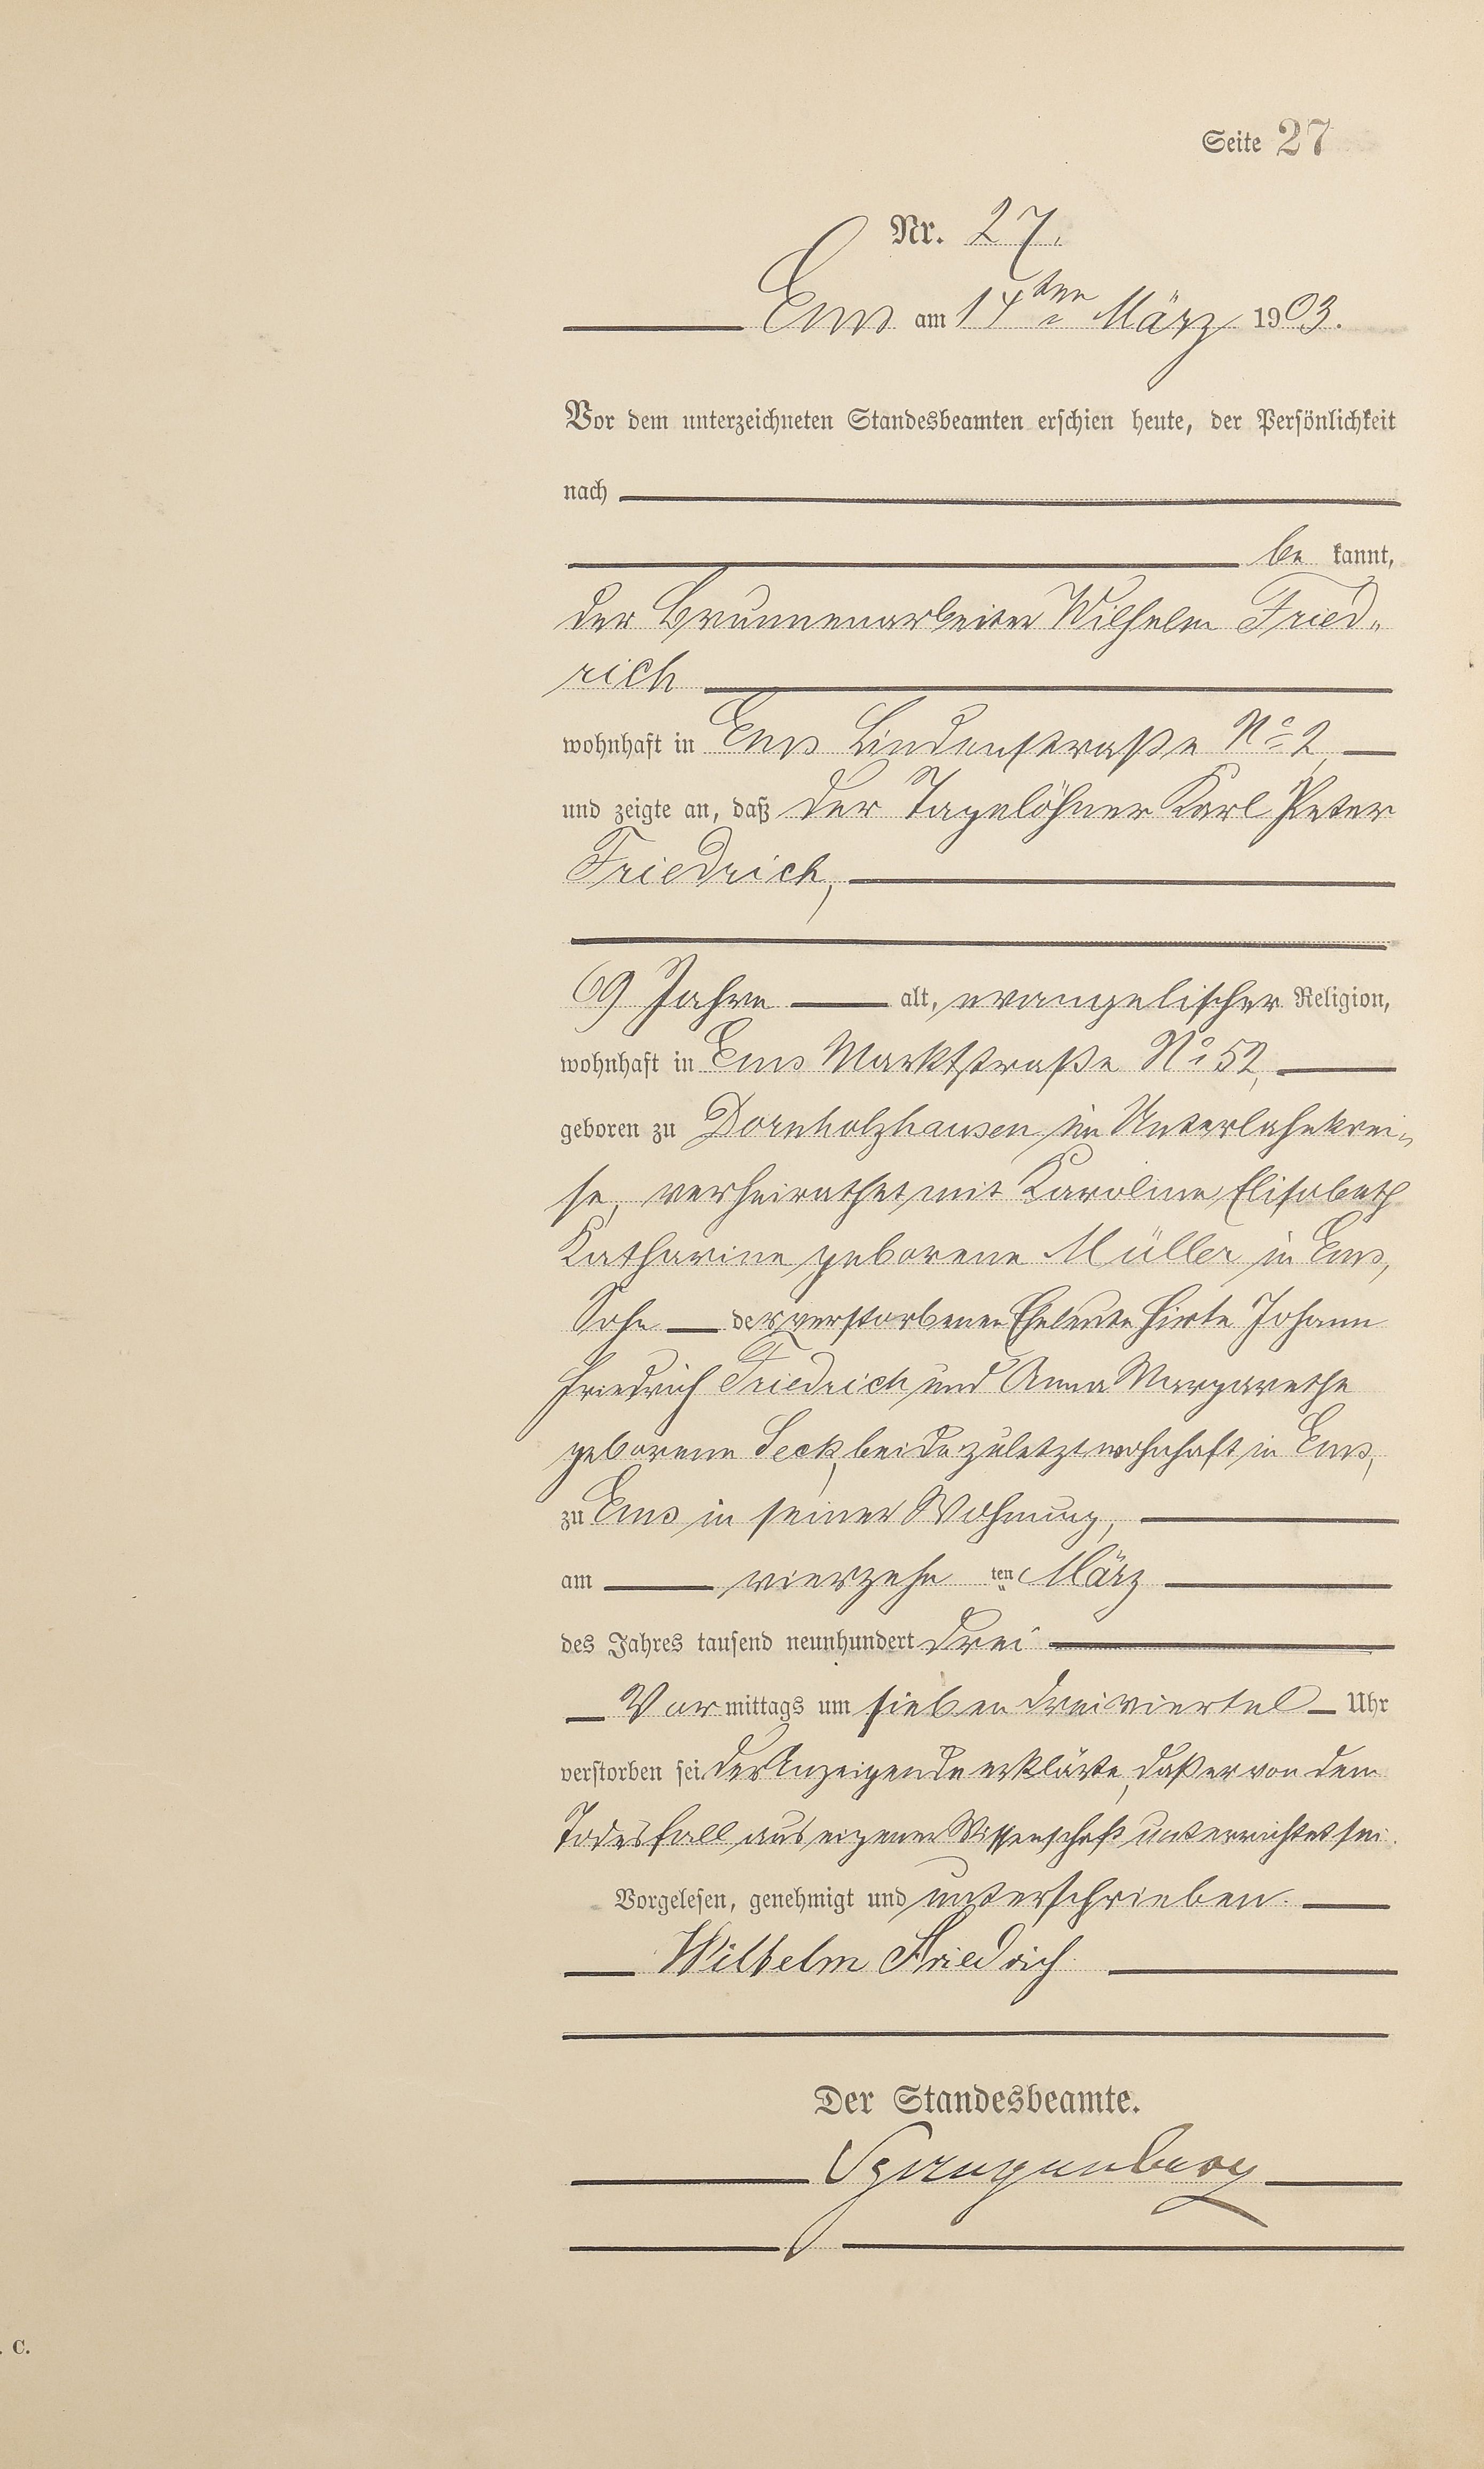 Seite 27
Nr. 27.
Ems am 14ten März 1903.
Vor dem unterzeichneten Standesbeamten erschien heute, der Persönlichkeit
nach
be kannt,
der Brunnenarbeiter Wilhelm Fried„
rich
wohnhaft in Ems Lindenstraße No 2
und zeigte an, daß der Tagelöhner Karl Peter
Friedrich,
69 Jahre alt, evangelischer Religion,
wohnhaft in Ems Marktstraße No 52,
geboren zu Dornholzhausen im Unterlahnkrei„
se, verheirathet mit Karoline Elisabeth
Katharine geborene Müller in Ems,
Sohn der verstorbenen Eheleute Hirte Johann
Friedrich Friedrich und Anna Margarethe
geborene Seck, beide zuletzt wohnhaft in Ems,
zu Ems in seiner Wohnung,
am vierzehn ten März
des Jahres tausend neunhundert drei
Vor mittags um sieben dreiviertel Uhr
verstorben sei. Der Anzeigende erklärte, daß er von dem
Todesfall aus eigener Wissenschaft unterrichtet sei.
Vorgelesen, genehmigt und unterschrieben.
Wilhelm Friedrich
Der Standesbeamte.
. C.